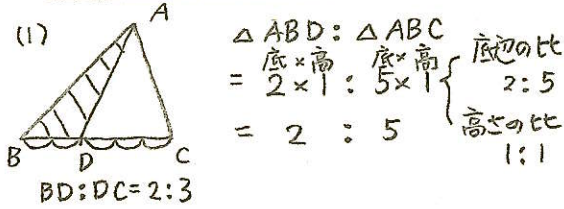 (1)
A
B D C
BD:DC=2:3
△ABD:△ABC
底×高 底×高
= 2×1 : 5×1
= 2 : 5
底辺の比
2:5
高さの比
1:1